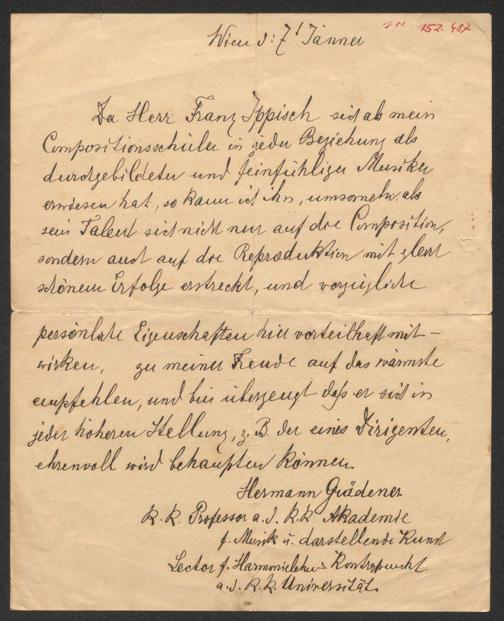 Wien d: 7t Jänner
152.487
Da Herr Franz Ippisch sich als mein
Compositionsschüler in jeder Beziehung als
durchgebildeter und feinfühliger Musiker
erwiesen hat, so kann ich ihn, umsomehr als
sein Talent sich nicht nur auf die Composition,
sondern auch auf die Reproduktion mit gleich
schönem Erfolge erstreckt, und vorzügliche
persönliche Eigenschaften hier vorteilhaft mit-
wirken, zu meiner Freude auf das wärmste
empfehlen, und bin überzeugt daß er sich in
jeder höheren Stellung, z. B. der eines Dirigenten,
ehrenvoll wird behaupten können.
Hermann Grädener
k. k. Professor a. d. k. k. Akademie
f. Musik u. darstellende Kunst
Lector f. Harmonielehre u. Kontrapunkt
a. d. k. k. Universität.